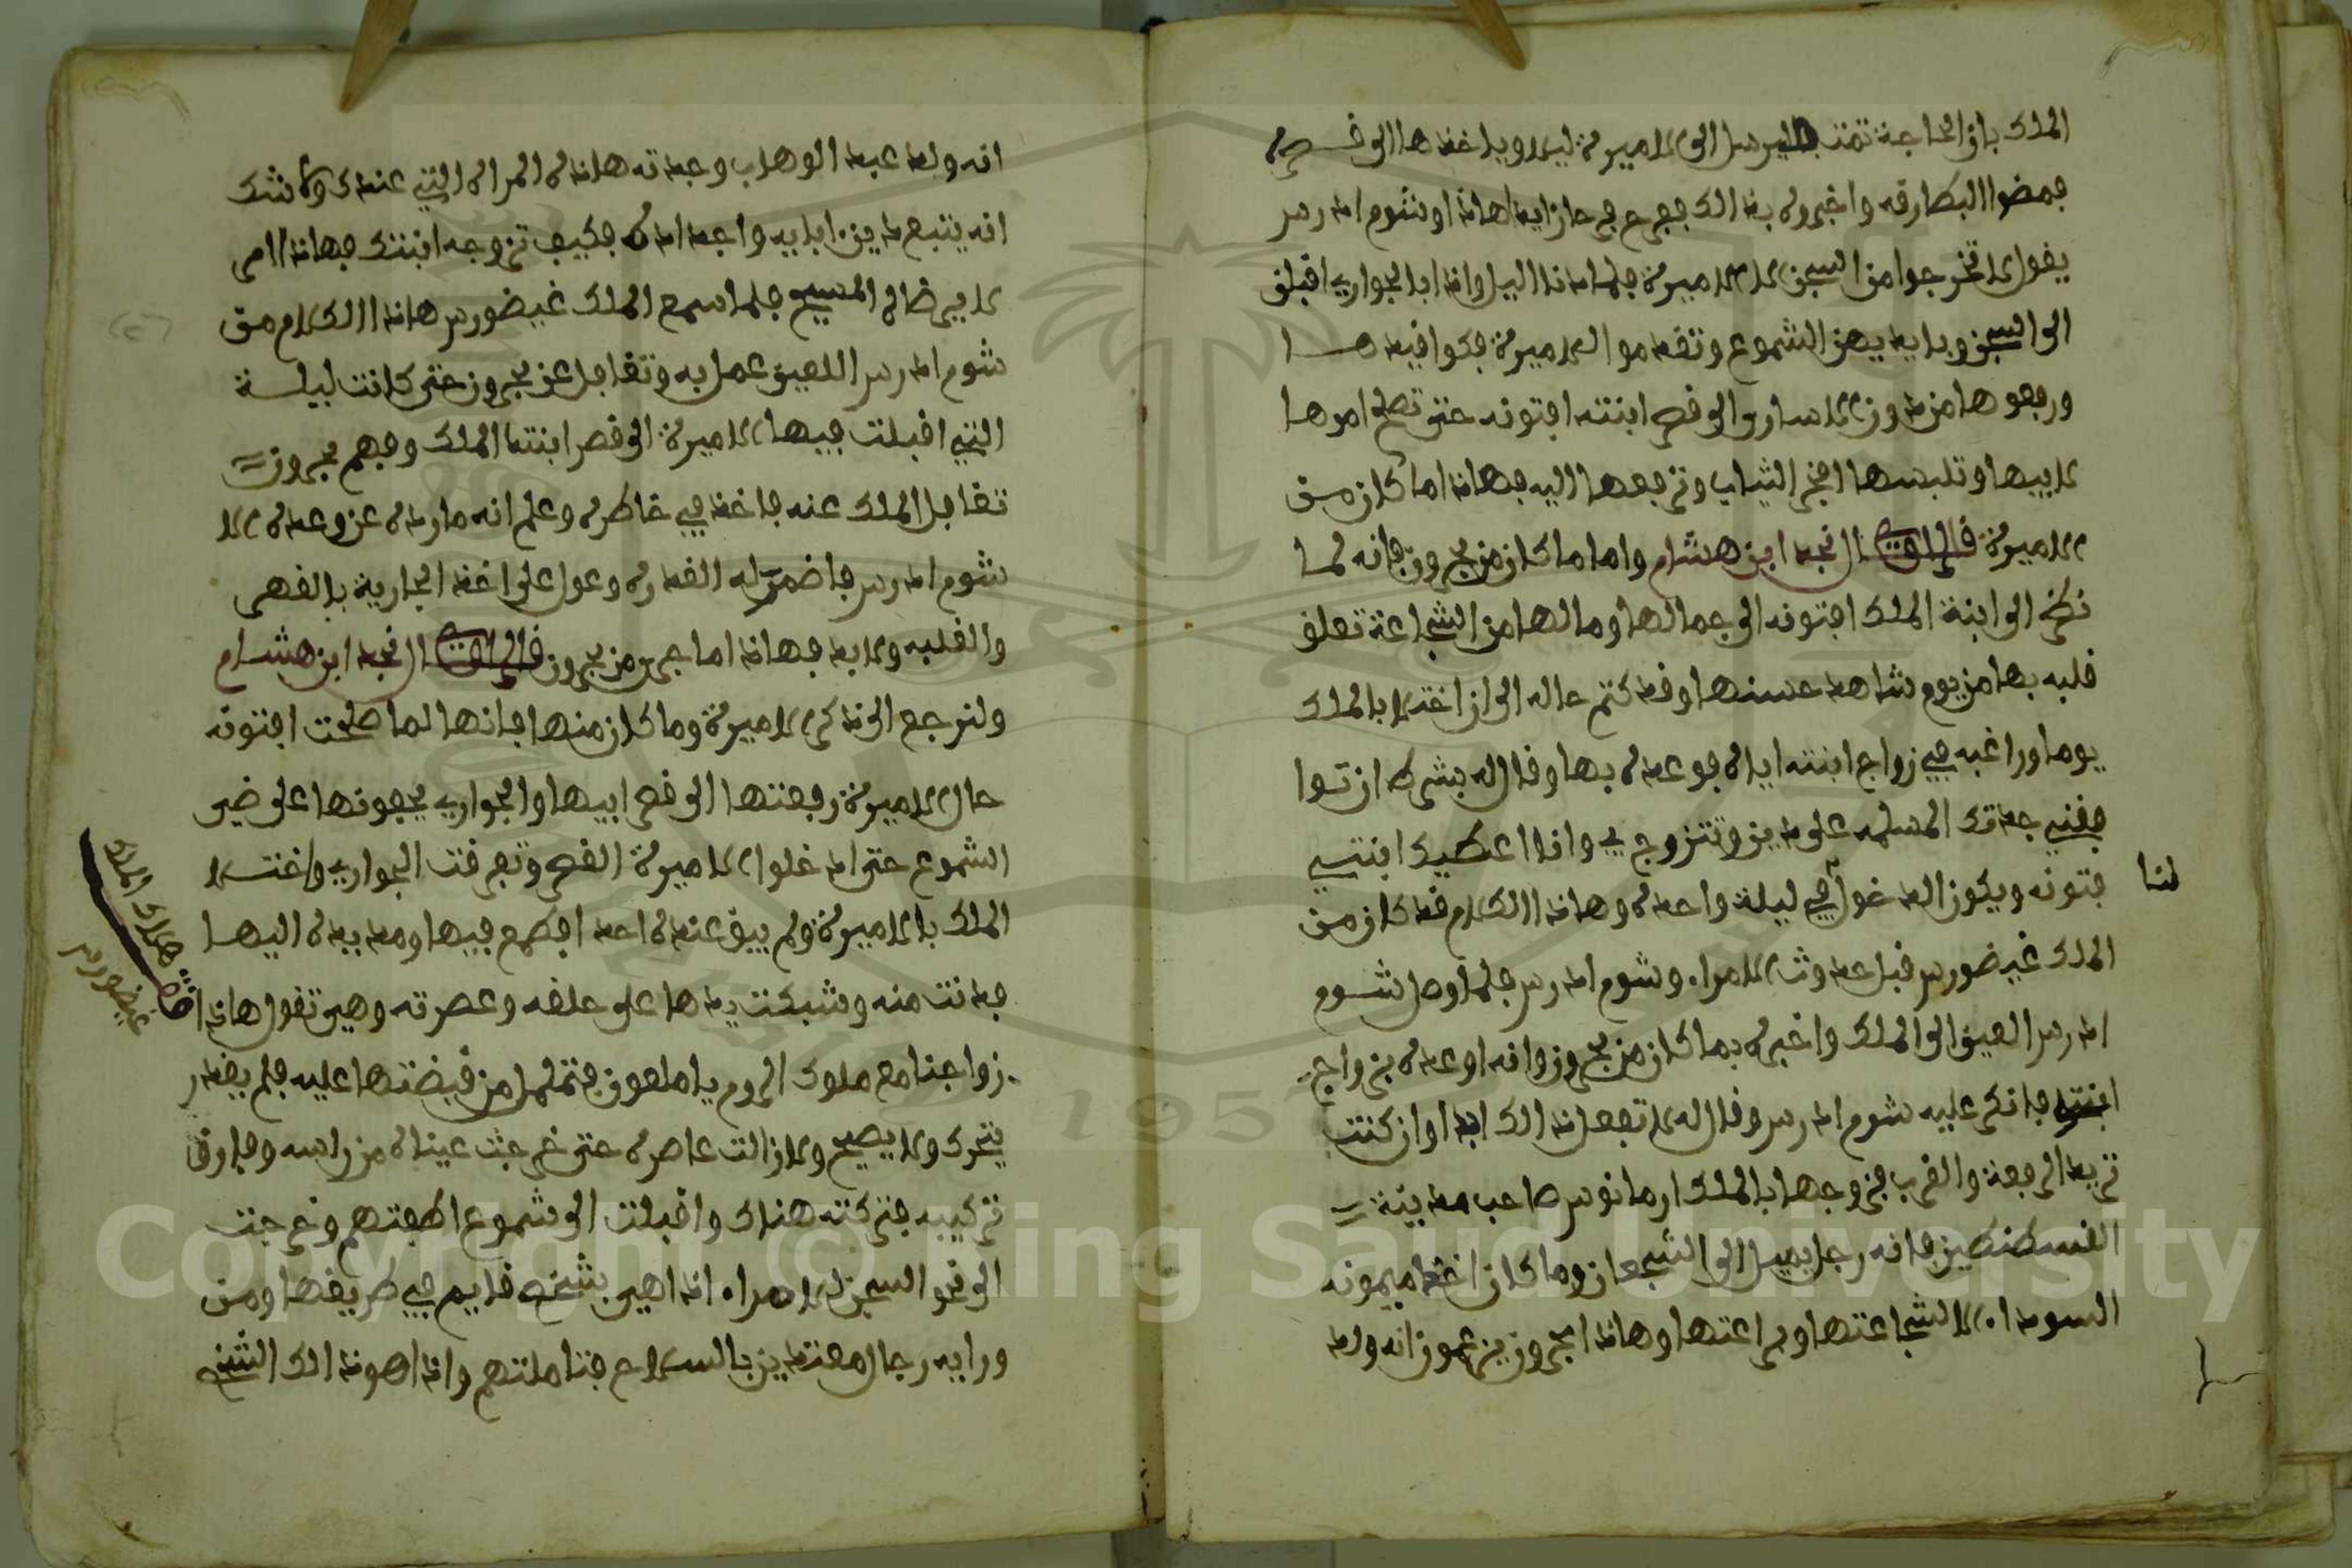 الملك بان الحاجة تمت فليرسل الى الاميرة ليلا وياخذها الى قصره
فمضوا البطارقه واخبروه بذالك ففرح فرحا زايدا هاذا وشوم ادرس
يقول لا تخرجوا من السجن الا الاميرة فلما دنا اليل واذا بالجوارى اقبلن
الى السجن وبايديهن الشموع وتقدموا للاميرة فكوا قيدها
ورفعوها من دون الاسارى الى قصر ابنته افتونه حتى تصلح امرها
لابيها وتلبسها افخر الثياب وترفعها اليه فهاذا ما كان من
الاميرة قال الراوى النجد ابن هشام واما ما كان من بحرون فانه لما
نظر الى ابنة الملك افتونه الى جمالها ومالها من الشجاعة تعلق
قلبه بها من يوم شاهد حسنها وقد كتم حاله الى ان اختلا بالملك
يوما وراغبه في زواج ابنته اياه فوعده بها وقال له بشرط ان توا
فقني جدتك المسلمه على دين وتتزوج بي وانا اعطيك ابنتي
فتونه ويكون الدخول في ليلة واحده وهاذا الكلام قد كان من
لنا
الملك غيضورس قبل حدوث الامراء وشوم ادرس فلما وصل شوم
ادرس العين الى الملك واخبره بما كان من بحرون وانه اوعده بزواج
ابنته فانكر عليه شوم ادرس وقال له لا تفعل ذالك ابدا وان كنت
تريد الرفعة والقرب فزوجها بالملك ارمانوس صاحب مدينة
القسطنطين فانه رجل يميل الى الشجعان وما كان اخذ ميمونه
السوداء الا لشجاعتها وبراعتها وهاذا بحرون يزعمون انه ولد
انه ولد عبد الوهاب وجدته هاذه المراه التي عندك ولا شك
انه يتبع دين ابايه واجداده فكيف تزوجه ابنتك فهاذا امر
لا يرضاه المسيح فلما سمع الملك غيضورس هاذا الكلام من
شوم ادرس اللعين عمل به وتغافل عن بحرون حتى كانت ليلة
التي اقبلت فيها الاميرة الى قصر ابنت الملك وفهم بحرون
تغافل الملك عنه فاخذ في خاطره وعلم انه ما رده عن وعده الا
شوم ادرس فاضمر له الغدره وعول على اخذ الجارية بالقهر
والغلبه ولابد فهاذا ما جرى من بحرون قال الراوى النجد ابن هشام
ولنرجع الى ذكر الاميرة وما كان منها فانها لما صلحت افتونه
حال الاميرة رفعتها الى قصر ابيها والجوارى يحفونها على ضي
الشموع حتى ادخلوا الاميرة القصر وتفرقت الجوارى واختلا
الملك بالاميرة ولم يبق عنده احد فطمع فيها ومد يده اليها
فدنت منه وشبكت يدها على حلقه وعصرته وهي تقول هاذا
زواجنا مع ملوك الروم يا ملعون فتململ من قبضتها عليه فلم يقدر
يتحرك ولا يصيح ولا زالت عاصره حتى خرجت عيناه من راسه وفارق
تركيبه فتركته هناك واقبلت الى شموع اطفتهم وخرجت
الى نحو السجن للامراء اذا هي بشخص قايم في طريقها ومن
ورايه رجال معتدين بالسلاح فتاملتهم واذا هو ذالك الشخص
هلاك الملك
غيضورس